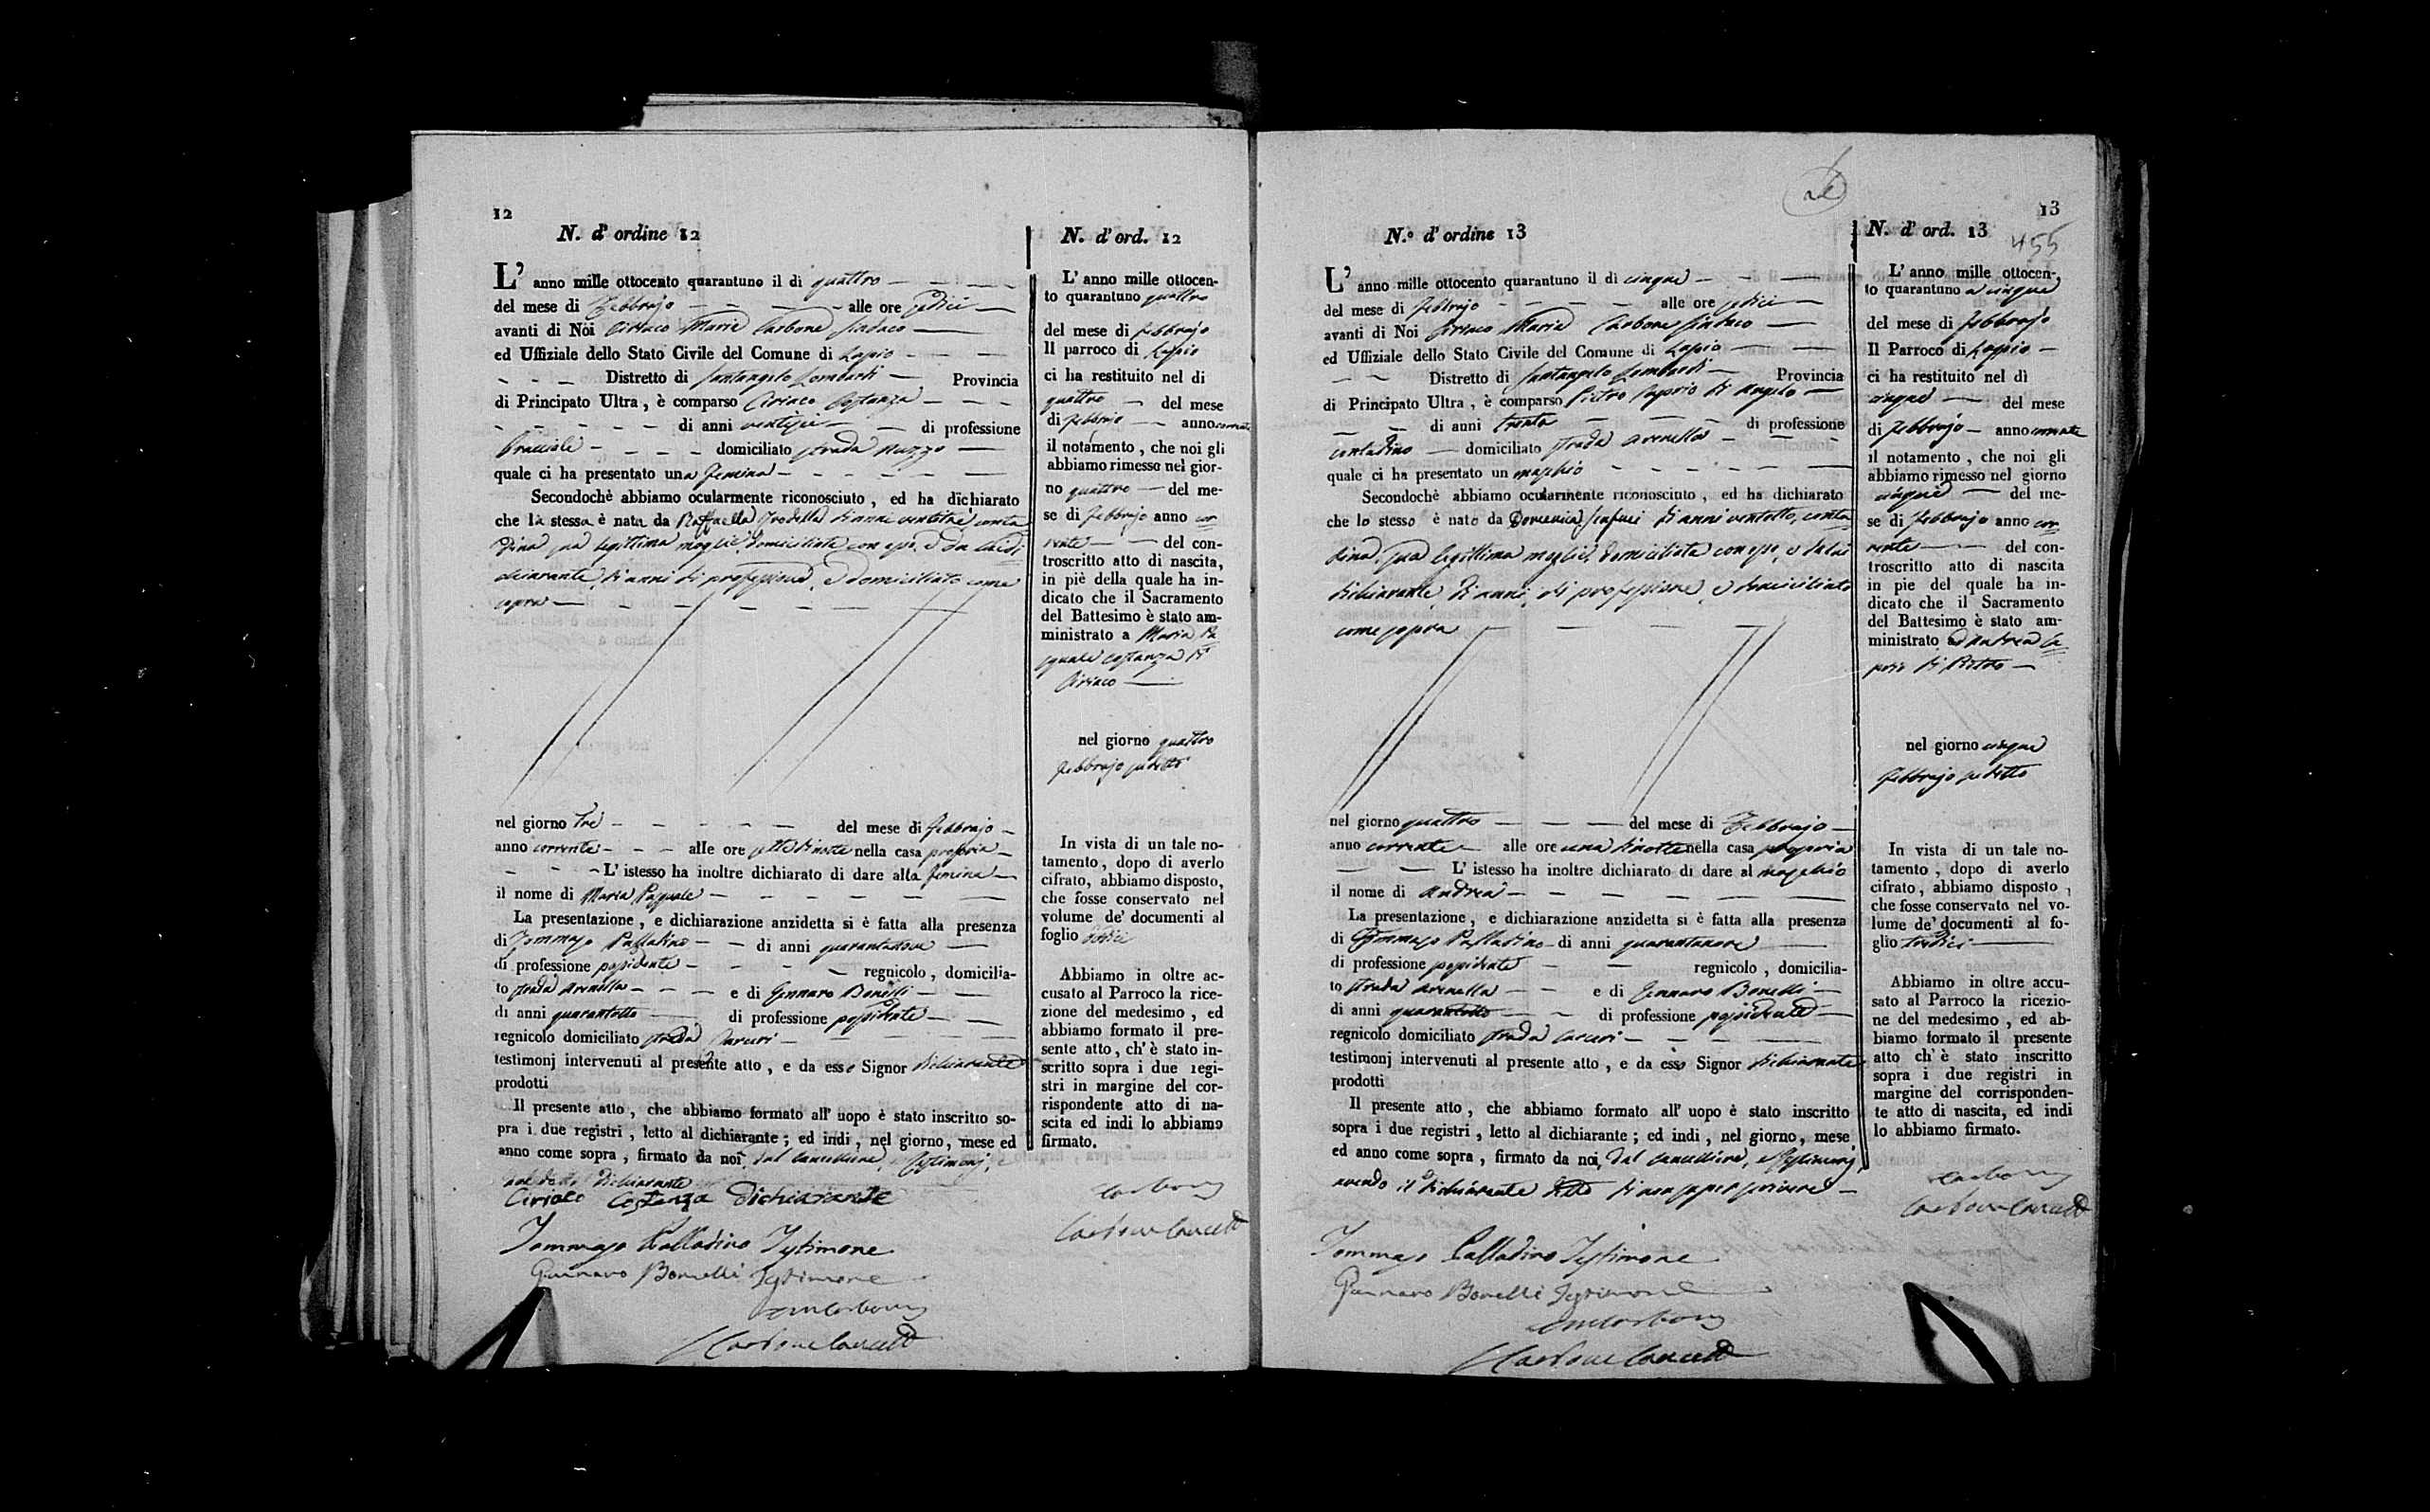 12
N. d' ordine 12
L' anno mille ottocento quarantuno il di quattro
del mese di Febbrajo alle ore sedici
avanti di Noi Ciriaco Maria Carbone sindaco
ed Uffiziale dello Stato Civile del Comune di Lapio
Distretto di Santangelo Lombardi Provincia
di Principato Ultra, è comparso Ciriaco Costanza
di anni ventisei di professione
bracciale domiciliato strada nuzzo
quale ci ha presentato una femina
Secondochè abbiamo ocularmente riconosciuto, ed ha dichiarato
che la stessa è nata da Raffaella di anni ventitre conta
dina sua legittima moglie, domiciliata con esso, e da lui di
chiarante, di anni di professione, e domiciliato come
sopra
nel giorno tre del mese di febbrajo
anno corrente alle ore sette di notte nella casa propria
L' istesso ha inoltre dichiarato di dare alla femina
il nome di Maria Pasquale
La presentazione, e dichiarazione anzidetta si è fatta alla presenza
di Tommaso Palladino di anni quarantanove
di professione possidente regnicolo, domicilia-
to strada arenella e di Gennaro Bonelli
di anni quarantotto di professione possidente
regnicolo domiciliato strada Carceri
testimonj intervenuti al presente atto, e da esso Signor dichiarante
prodotti
Il presente atto, che abbiamo formato all' uopo è stato inscritto so-
pra i due registri, letto al dichiarante; ed indi, nel giorno, mese ed
anno come sopra, firmato da noi dal cancelliere, testimonj,
dichiarante
Ciriaco Costanza dichiarante
Tommaso Palladino Testimone
Gennaro Bonelli Testimone
Carbone
Carbone Cancell
N. d' ord. 12
L' anno mille ottocen-
to quarantuno quattro
del mese di febbrajo
Il parroco di Lapio
ci ha restituito nel di
quattro del mese
di febbrajo anno corrente
il notamento, che noi gli
abbiamo rimesso nel gior-
no quattro del me-
se di febbrajo anno cor
rente del con-
troscritto atto di nascita,
in piè della quale ha in-
dicato che il Sacramento
del Battesimo è stato am-
ministrato a Maria Pa
squale Costanza di
Ciriaco
nel giorno quattro
febbrajo sudetto
In vista di un tale no-
tamento, dopo di averlo
cifrato, abbiamo disposto,
che fosse conservato nel
volume de' documenti al
foglio dodici
Abbiamo in oltre ac-
cusato al Parroco la rice-
zione del medesimo, ed
abbiamo formato il pre-
sente atto, ch' è stato in-
scritto sopra i due regi-
stri in margine del cor-
rispondente atto di na-
scita ed indi lo abbiamo
firmato.
Carbone
Carbone Cancell
13
455
N.º d' ordine 13
L' anno mille ottocento quarantuno il dì cinque
del mese di febbrajo alle ore sedici
avanti di Noi Ciriaco Maria Carbone sindaco
ed Uffiziale dello Stato Civile del Comune di Lapio
Distretto di Santangelo Lombardi Provincia
di Principato Ultra, è comparso Pietro Caporio di Angelo
di anni trenta di professione
contadino domiciliato strada arenella
quale ci ha presentato un maschio
Secondochè abbiamo ocularmente riconosciuto, ed ha dichiarato
che lo stesso è nato da Domenica di anni ventotto, conta
dina, sua legittima moglie, domiciliata con esso, e da lui
dichiarante, di anni, di professione, e domiciliato
come sopra
nel giorno quattro del mese di Febbrajo
anno corrente alle ore una di notte nella casa propria
L' istesso ha inoltre dichiarato di dare al maschio
il nome di Andrea
La presentazione, e dichiarazione anzidetta si è fatta alla presenza
di Tommaso Palladino di anni quarantanove
di professione possidente regnicolo, domicilia-
to strada arenella e di Gennaro Bonelli
di anni quarantotto di professione possidente
regnicolo domiciliato strada Carceri
testimonj intervenuti al presente atto, e da esso Signor dichiarante
prodotti
Il presente atto, che abbiamo formato all' uopo è stato inscritto
sopra i due registri, letto al dichiarante; ed indi, nel giorno, mese
ed anno come sopra, firmato da noi, dal cancelliere, e testimonj
avendo il dichiarante detto di non saper scrivere
Tommaso Palladino Testimone
Gennaro Bonelli Testimone
Carbone
Carbone Cancell
N. d' ord. 13
L' anno mille ottocen-
to quarantuno a cinque
del mese di febbrajo
Il Parroco di Lapio
ci ha restituito nel dì
cinque del mese
di febbrajo anno corrente
il notamento, che noi gli
abbiamo rimesso nel giorno
cinque del me-
se di febbrajo anno cor
rente del con-
troscritto atto di nascita
in pie del quale ha in-
dicato che il Sacramento
del Battesimo è stato am-
ministrato ad Andrea Ca
porio di Pietro
nel giorno cinque
febbrajo sudetto
In vista di un tale no-
tamento, dopo di averlo
cifrato, abbiamo disposto,
che fosse conservato nel vo-
lume de' documenti al fo-
glio tredici
Abbiamo in oltre accu-
sato al Parroco la ricezio-
ne del medesimo, ed ab-
biamo formato il presente
atto ch' è stato inscritto
sopra i due registri in
margine del corrisponden-
te atto di nascita, ed indi
lo abbiamo firmato.
Carbone
Carbone Cancell